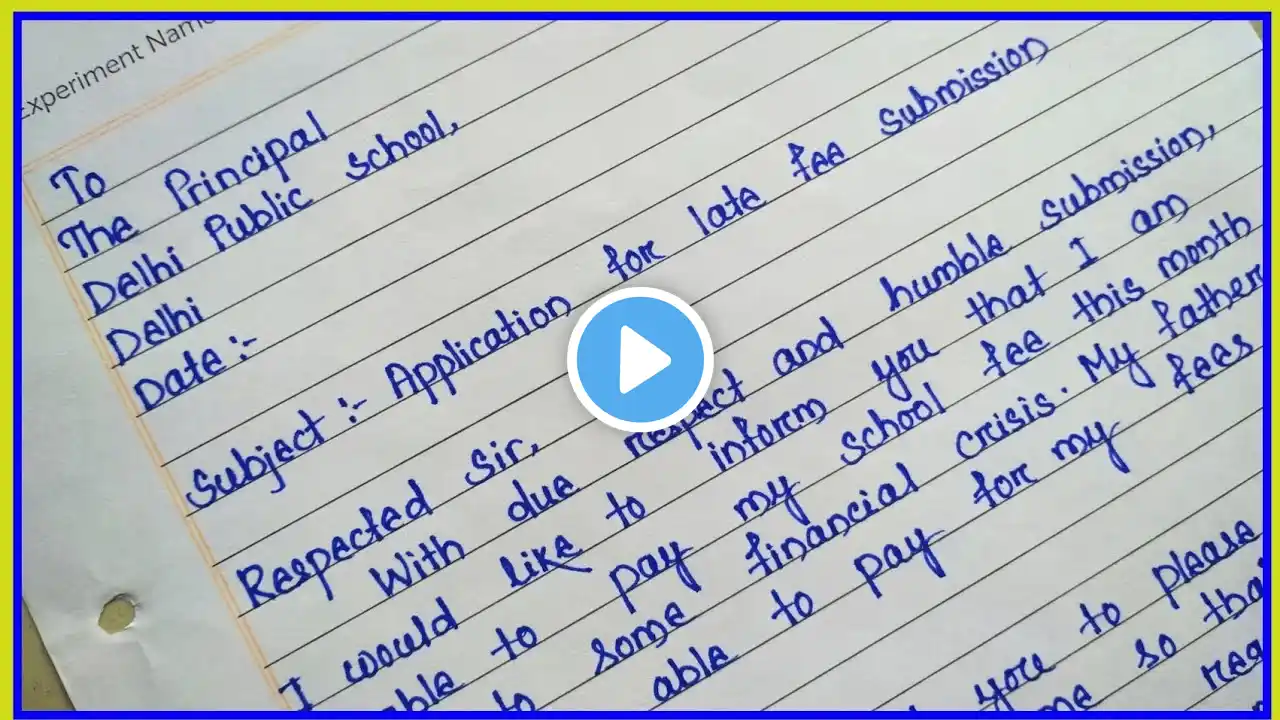 Experiment Name
To
The Principal
Delhi Public School,
Delhi
Date :-
Subject :- Application for late fee submission
Respected Sir,
With due respect and humble submission,
I would like to inform you that I am
able to pay my school fee this month
to some financial crisis. My father
able to pay for my fees
you to please
so